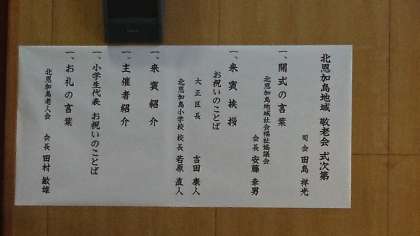 北恩加島地域 敬老会 式次第
司会 田島 祥光
一、開式の言葉
北恩加島地域社会福祉協議会
会長 安藤 幸男
一、来賓挨拶
お祝いのことば
大正区長 吉田 康人
北恩加島小学校 校長 若原 直人
一、来賓紹介
一、主催者紹介
一、小学生代表 お祝いのことば
一、お礼の言葉
北恩加島老人会 会長 田村 敏雄